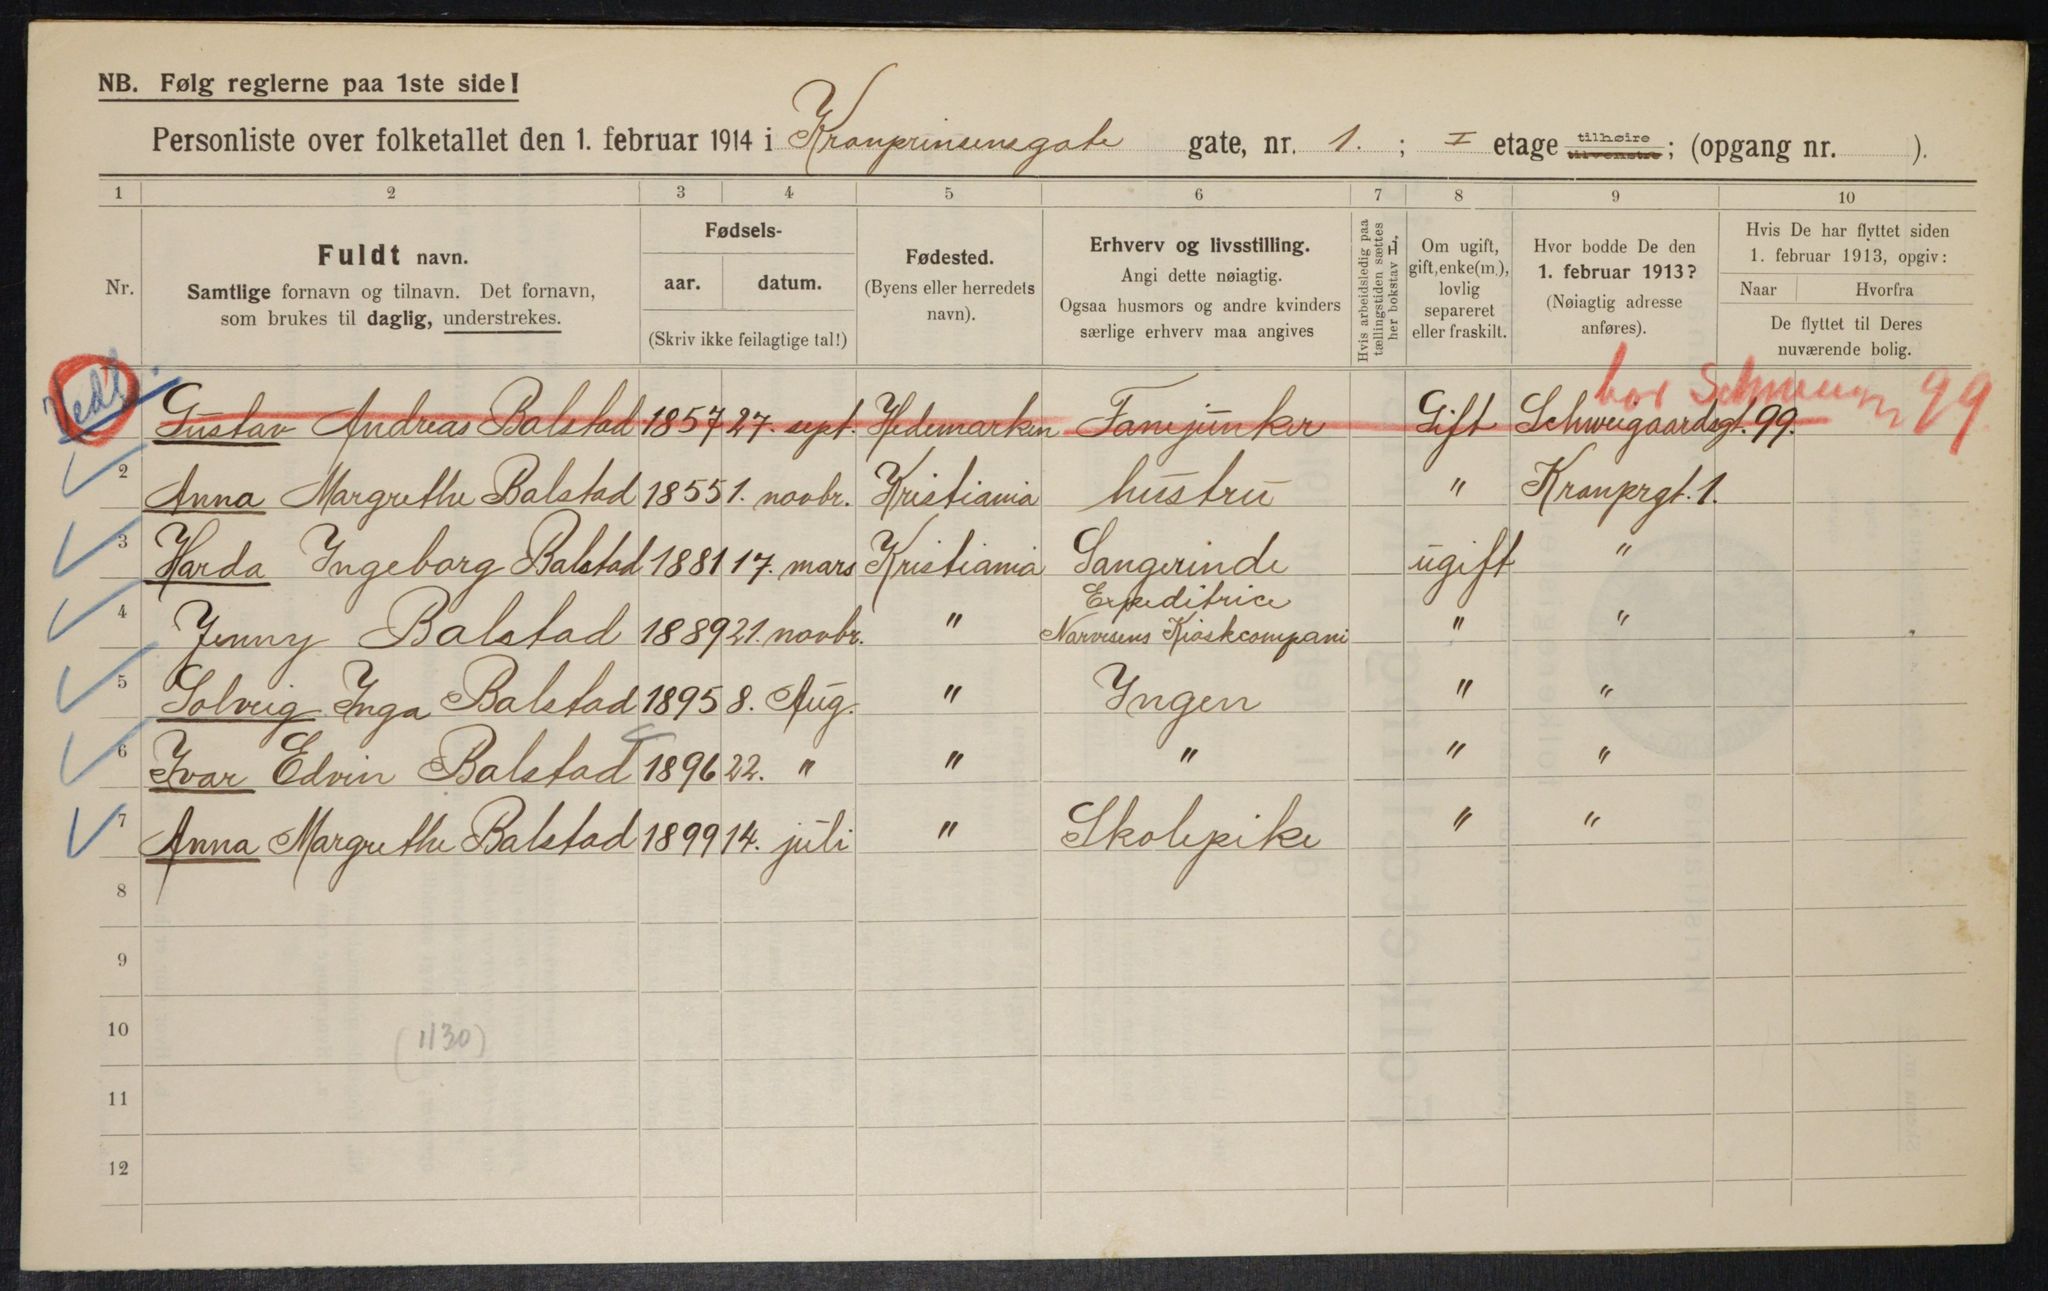 NB. Følg reglerne paa 1ste side!
Personliste over folketallet den 1. februar 1914 i Kronprinsensgate gate, nr. 1. ; I etage tilhøire tilvenstre; (opgang nr. ).
1 2 3 4 5 6 7 8 9 10
Nr.
Fuldt navn.
Samtlige fornavn og tilnavn. Det fornavn,
som brukes til daglig, understrekes.
Fødsels-
aar. datum.
(Skriv ikke feilagtige tal!)
Fødested.
(Byens eller herredets
navn).
Erhverv og livsstilling.
Angi dette nøiagtig.
Ogsaa husmors og andre kvinders
særlige erhverv maa angives
Hvis arbeidsledig paa
tællingstiden sættes
her bokstav L.
Om ugift,
gift, enke(m.),
lovlig
separeret
eller fraskilt.
Hvor bodde De den
1. februar 1913?
(Nøiagtig adresse
anføres).
Hvis De har flyttet siden
1. februar 1913, opgiv:
Naar Hvorfra
De flyttet til Deres
nuværende bolig.
bor 99
Gustav Andreas Balstad 1857 27. sept. Hedemarken Fanejunker Gift Schweigaardsgt. 99.
2 Anna Margrethe Balstad 1855 1. novbr. Kristiania hustru " Kronprgt. 1.
3 Harda Ingeborg Balstad 1881 17. mars Kristiania Sangerinde ugift "
4 Jenny Balstad 1889 21. novbr. " Expeditrice Narvesens Kioskcompani " "
5 Solveig Inga Balstad 1895 8. Aug. " Ingen " "
6 Ivar Edvin Balstad 1896 22. " " " " "
7 Anna Margrethe Balstad 1899 14. juli " Skolepike " "
8
9
10 (1130)
11
12